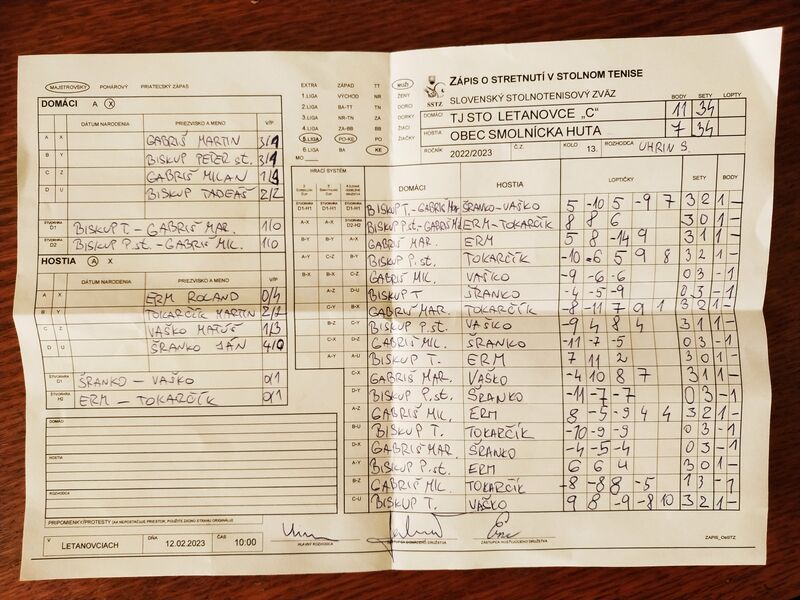 MAJSTROVSKÝ POHÁROVÝ PRIATEĽSKÝ ZÁPAS
DOMÁCI A X
DÁTUM NARODENIA PRIEZVISKO A MENO V/P
A X GABRIŠ MARTIN 3/1
B Y BISKUP PETER st. 3/1
C Z GABRIŠ MILAN 1/3
D U BISKUP TADEÁŠ 2/2
ŠTVORHRA D1 BISKUP T. - GABRIŠ MAR. 1/0
ŠTVORHRA D2 BISKUP P.st. - GABRIŠ MIL. 1/0
HOSTIA A X
DÁTUM NARODENIA PRIEZVISKO A MENO V/P
A X ERM ROLAND 0/4
B Y TOKARČÍK MARTIN 2/2
C Z VAŠKO MATÚŠ 1/3
D U ŠRANKO JÁN 4/0
ŠTVORHRA ŠRANKO - VAŠKO 0/1
ŠTVORHRA H2 ERM - TOKARČÍK 0/1
DOMÁCI
HOSTIA
ROZHODCA
PRIPOMIENKY/PROTESTY (AK NEPOSTAČUJE PRIESTOR, POUŽITE ZADNÚ STRANU ORIGINÁLU)
V LETANOVCIACH DŇA 12.02.2023 ČAS 10:00
HLAVNÝ ROZHODCA
ZÁSTUPCA DOMÁCEHO DRUŽSTVA
ZÁSTUPCA HOSŤUJÚCEHO DRUŽSTVA
ZAPIS_OsSTZ
EXTRA ZÁPAD TT
1.LIGA VÝCHOD NR
2.LIGA BA-TT TN
3.LIGA NR-TN ZA
4.LIGA ZA-BB BB
5.LIGA PO-KE PO
6.LIGA BA KE
MO
MUŽI
ŽENY
DORCI
DORKY
ŽIACI
ŽIAČKY
SSTZ
ZÁPIS O STRETNUTÍ V STOLNOM TENISE
SLOVENSKÝ STOLNOTENISOVÝ ZVÄZ
BODY SETY LOPTY
DOMÁCI TJ STO LETANOVCE „C“ 11 34
HOSTIA OBEC SMOLNÍCKA HUTA 7 34
ROČNÍK 2022/2023 Č.Z. KOLO 13. ROZHODCA UHRIN S.
HRACÍ SYSTÉM
DOMÁCI HOSTIA LOPTIČKY SETY BODY
D1-H1 D1-H1 D1-H1 BISKUP T.-GABRIŠ MAR ŠRANKO-VAŠKO 5 -10 5 -9 7 3 2 1 -
A-X A-X D2-H2 BISKUP P.st.-GABRIŠ MIL ERM-TOKARČÍK 8 8 6 3 0 1 -
B-Y B-Y A-X GABRIŠ MAR. ERM 5 8 -14 9 3 1 1 -
A-Y C-Z B-Y BISKUP P.st. TOKARČÍK -10 -6 5 9 8 3 2 1 -
B-X B-X C-Z GABRIŠ MIL. VAŠKO -9 -6 -6 0 3 - 1
A-Z D-U BISKUP T ŠRANKO -4 -5 -9 0 3 - 1
C-Y A-Y GABRIŠ MAR. TOKARČÍK -8 -11 7 9 1 3 2 1 -
B-Z B-Z BISKUP P.st. VAŠKO -9 4 8 4 3 1 1 -
C-X C-U GABRIŠ MIL. ŠRANKO -11 -7 -5 0 3 - 1
A-Y D-X BISKUP T. ERM 7 11 2 3 0 1 -
GABRIŠ MAR. VAŠKO -4 10 8 7 3 1 1 -
BISKUP P.st. ŠRANKO -11 -7 -7 0 3 - 1
GABRIŠ MIL. ERM 8 -5 -9 4 4 3 2 1 -
BISKUP T. TOKARČÍK -10 -9 -9 0 3 - 1
GABRIŠ MAR. ŠRANKO -4 -5 -4 0 3 - 1
BISKUP P.st. ERM 6 6 4 3 0 1 -
GABRIŠ MIL. TOKARČÍK -8 -8 8 -5 1 3 - 1
BISKUP T. VAŠKO 9 8 -9 -8 10 3 2 1 -